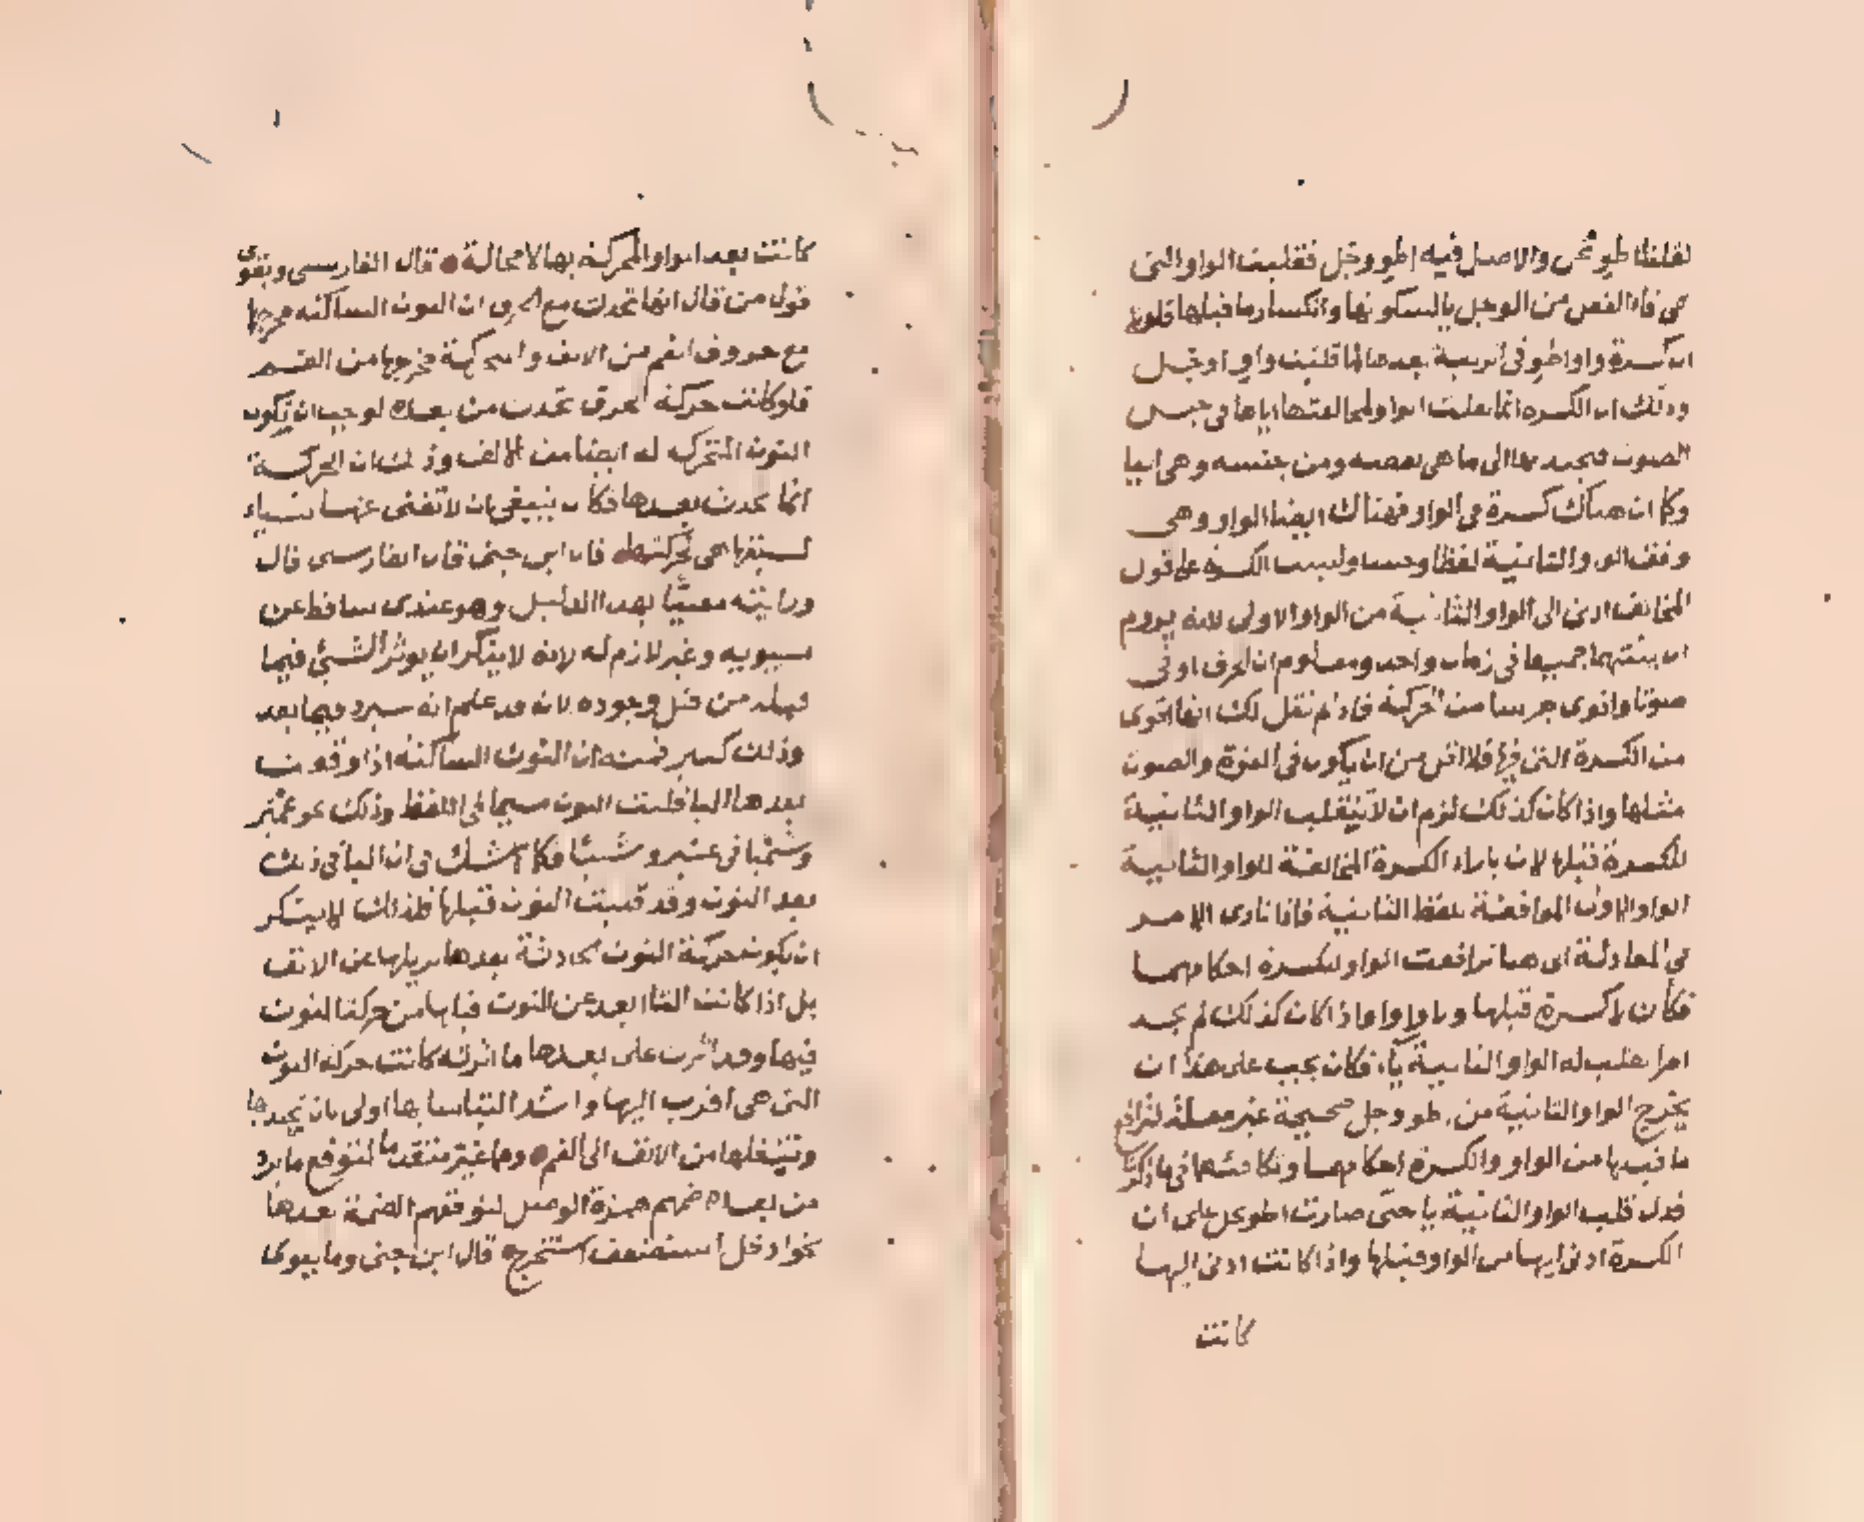 لقلنا اطو نحن والاصل فيه اطو وجل فقلبت الواو التى
هى فاء الفعل من الوجل يا لسكونها وانكسار ما قبلها فلو
ان كسرة واو اطو فى تربية بعدها لما قلبت واو اوجل
وذلك ان الكسرة انما قلبت الواو لمخالفتها اياها فى جنس
الصوت فتجذبها الى ما هى بعضه ومن جنسه وهى اليا
وكما ان هناك كسرة فى الواو فهناك ايضا الواو وهى
وفق الواو الثانية لفظا وحسا وليست الكسرة على قول
المخالف ادنى الى الواو الثانية من الواو الاولى لانه يروم
ان يثبتهما جميعا فى زمان واحد ومعلوم ان الحرف اوفى
صوتا واقوى جرسا من الحركة فاذا لم نقل لك انها اقوى
من الكسرة التى فيها فلا اقل من ان يكون فى القوة والصوت
مثلها واذا كان كذلك لزم ان لا تنقلب الواو الثانية
للكسرة قبلها لان باراء الكسرة المخالفة للواو الثانية
الواو الاولى الموافقة للفظ الثانية فاذا تادى الامر
فى المعادلة الى هنا ترافعت الواو والكسرة احكامهما
فكان لا كسرة قبلها ولا واو واذا كان كذلك لم نجد
امرا تقلب له الواو الثانية ياء فكان يجب على هذا ان
تخرج الواو الثانية من اطو وجل صحيحة غير معتلة لترافع
ما قبلها من الواو والكسرة احكامهما وتكافئهما فى ما ذكرنا
فدل قلب الواو الثانية يا حتى صارت اطو يجل على ان
الكسرة ادنى اليها من الواو قبلها واذا كانت ادنى اليها
كانت
كانت بعد الواو المحركة بها لا محالة قال الفارسى ويقوى
قول من قال انها تحدث مع الحرف ان النون الساكنة مخرجها
مع حروف الفم من الانف والمتحركة مخرجها من الفم
فلو كانت حركة الحرف تحدث من بعده لوجب ان تكون
النون المتحركة له ايضا من الالف وذلك ان الحركة
انما تحدث بعدها فكان ينبغى ان لا تغنى عنها شياء
لسبقها هى لحركتها قال ابن جنى قال الفارسى قال
ورايته معنيا بهذا الدليل وهو عندى ساقط عن
سيبويه وغير لازم له لانه لا ينكر ان يوثر الشئ فيما
قبله من قبل وجوده لانه قد علم انه سيرد فيما بعد
وذلك كثير فمنه ان النون الساكنة اذا وقعت
بعدها البا قلبت النون ميما فى اللفظ وذلك نحو عمبر
وشمبا فى عنبر وشنبا فكما لا شك فى ان البا فى ذلك
بعد النون وقد قلبت النون قبلها فكذلك لا ينكر
ان تكون حركة النون الحادثة بعدها تزيلها عن الانف
بل اذا كانت البا ابعد عن النون قبلها من حركتا النون
فيها وقد اثرت على بعدها ما اثرته كانت حركة النون
التى هى اقرب اليها واشد التباسا بها اولى بان تجذبها
وتنقلها من الانف الى الفم وما غير متقدما لتوقع ما يرد
من بعده ضمهم همزة الوصل لتوقعهم الضمة بعدها
نحو ادخل استضعف استخرج قال ابن جنى وما يقوى